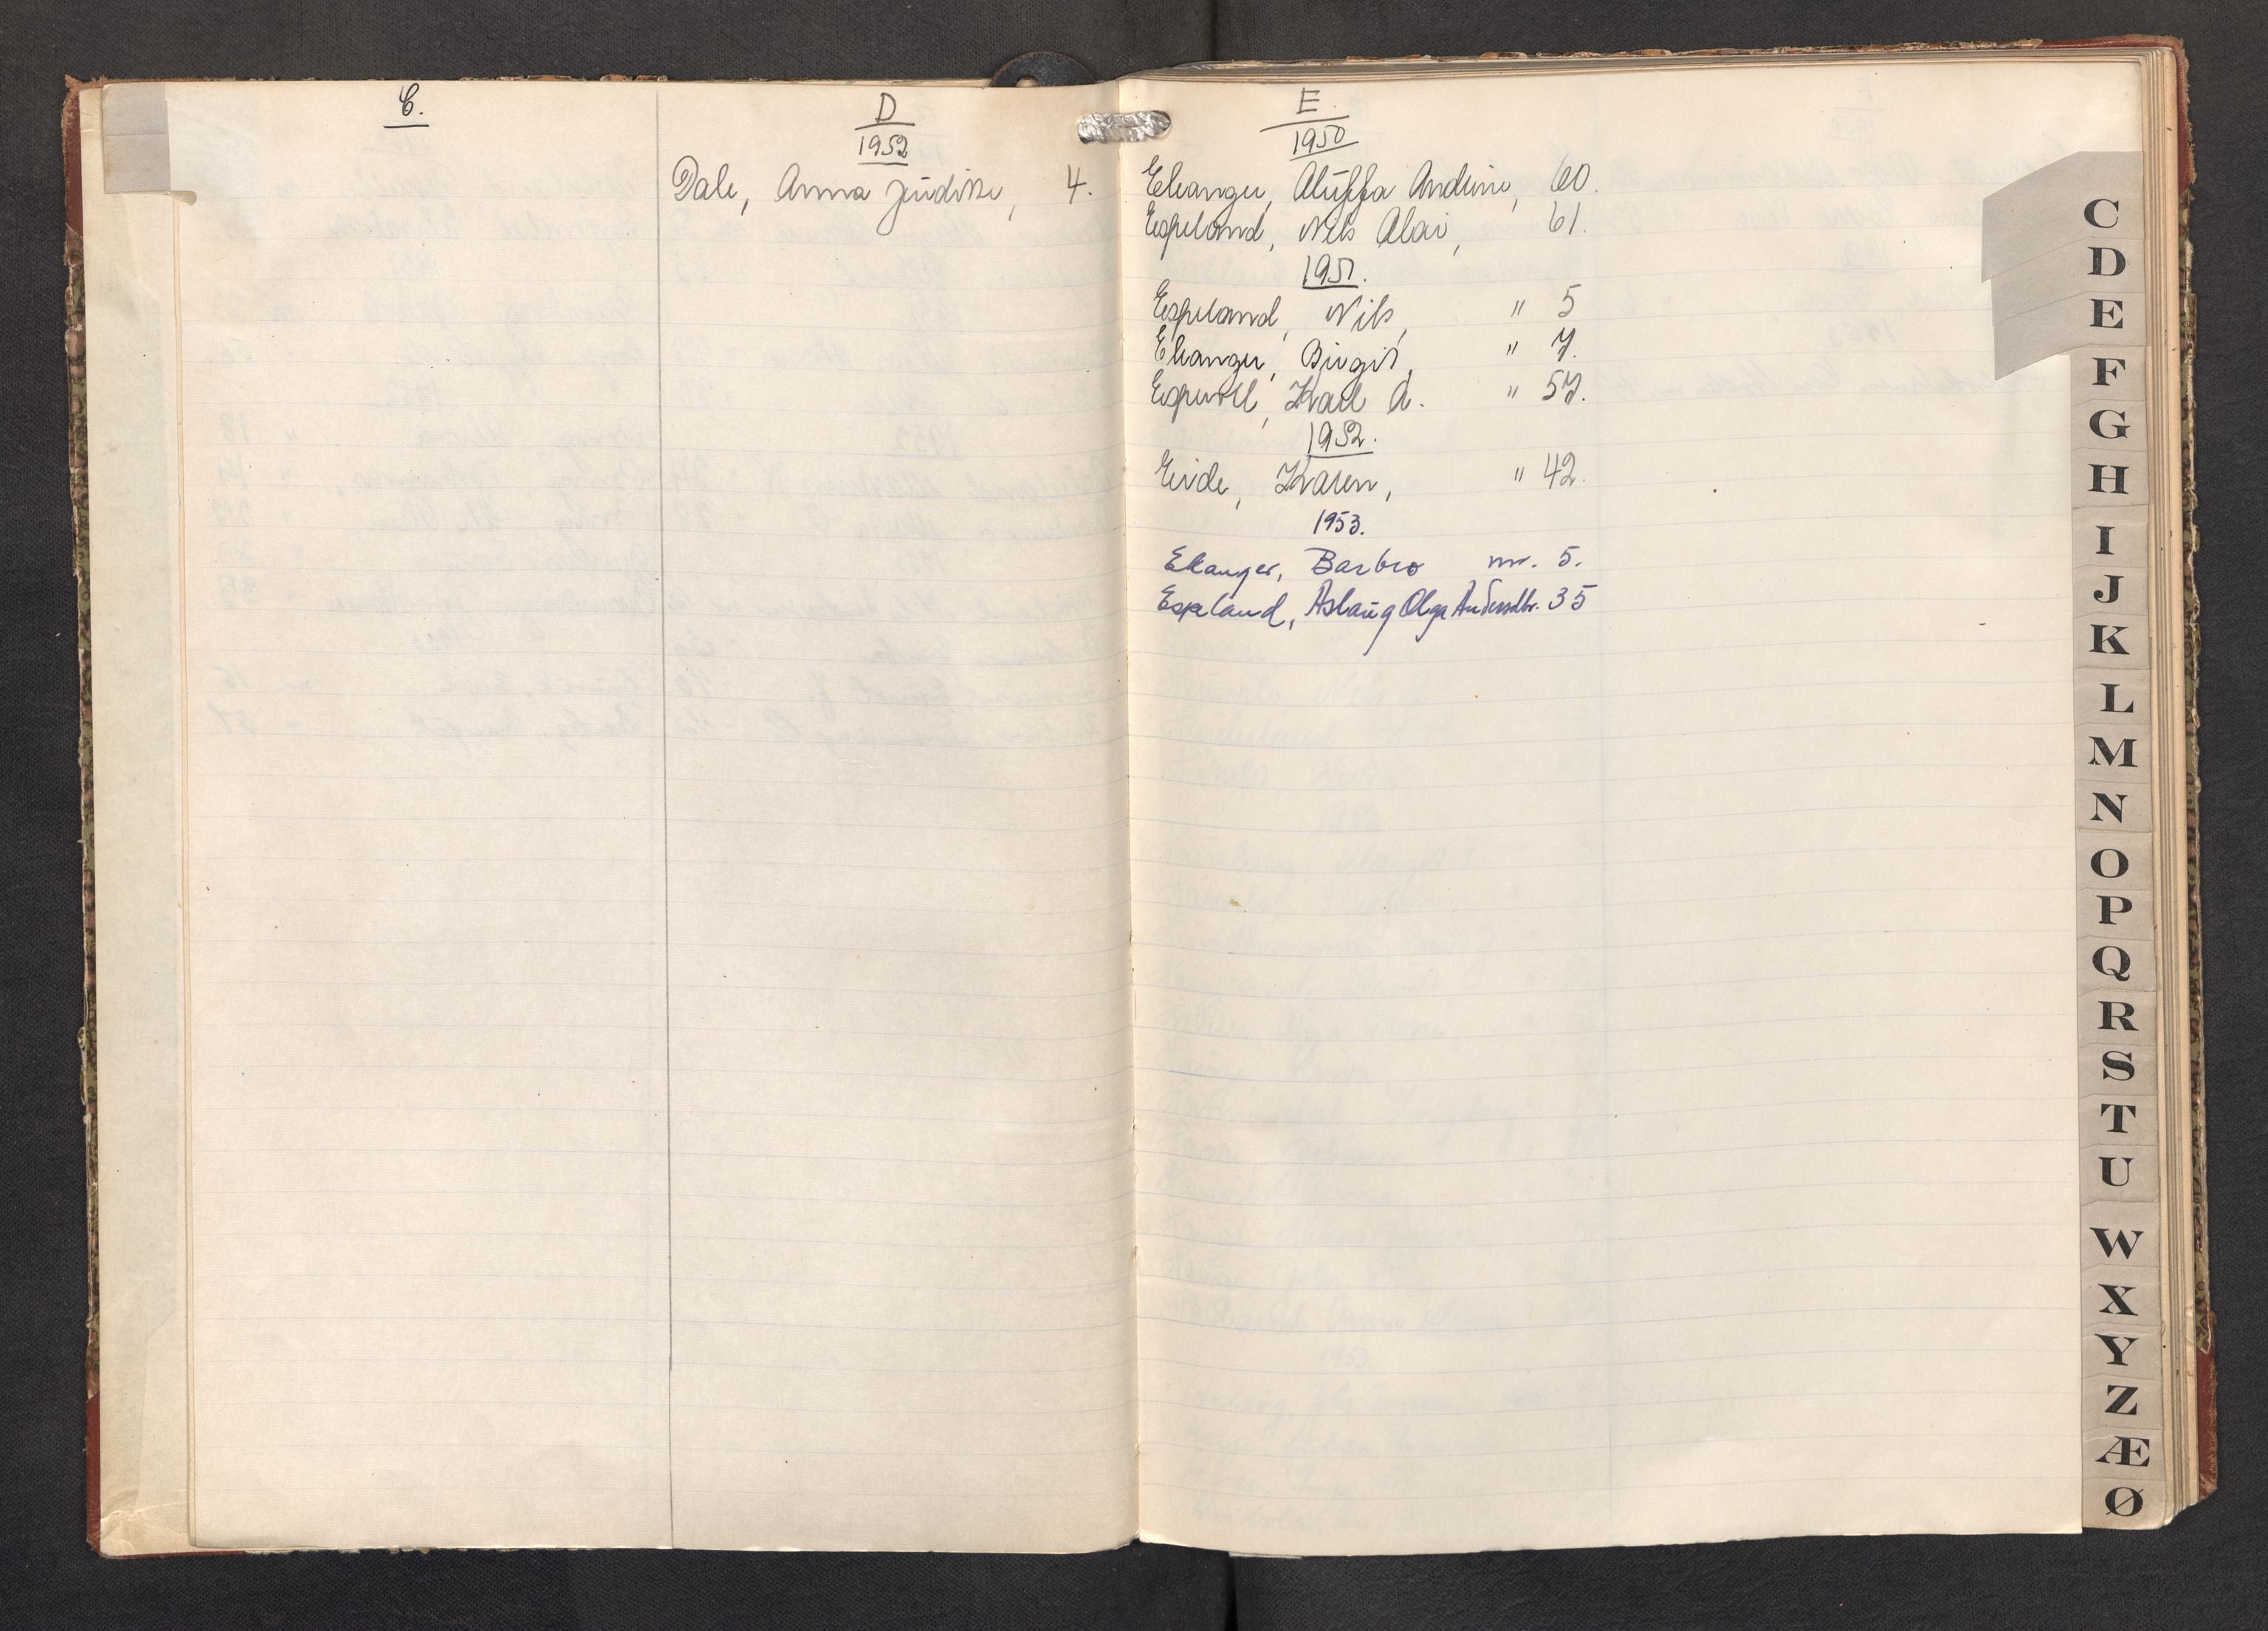 C.
D
1952
Dale, Anna Juditte, 4.
E.
1950
Ekanger, Andrine, 60.
Espeland, Nils Olai, 61.
1951.
Espeland, Nils, " 5
Ekanger, Birgit, " 7.
Espevoll, Karl A. " 57.
1952.
Eide, Karen, " 42.
1953.
Ekanger, Barbro nr. 5.
Espeland, Aslaug Olga Andersdtr. 35
C
D
E
F
G
H
I
J
K
L
M
N
O
P
Q
R
S
T
U
W
X
Y
Z
Æ
Ø